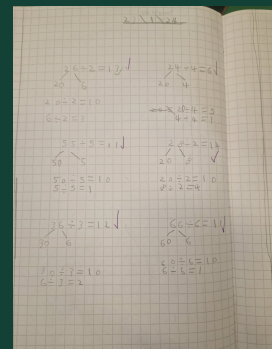 26÷2=13✓
20 6
20÷2=10
6÷2=3
24÷4=6✓
20 4
20÷4=5
4÷4=1
55÷5=11✓
50 5
50÷5=10
5÷5=1
28÷2=14
20 8 ✓
20÷2=10
8÷2=4
36÷3=12✓
30 6
30÷3=10
6÷3=2
66÷6=11✓
60 6
60÷6=10
6÷6=1